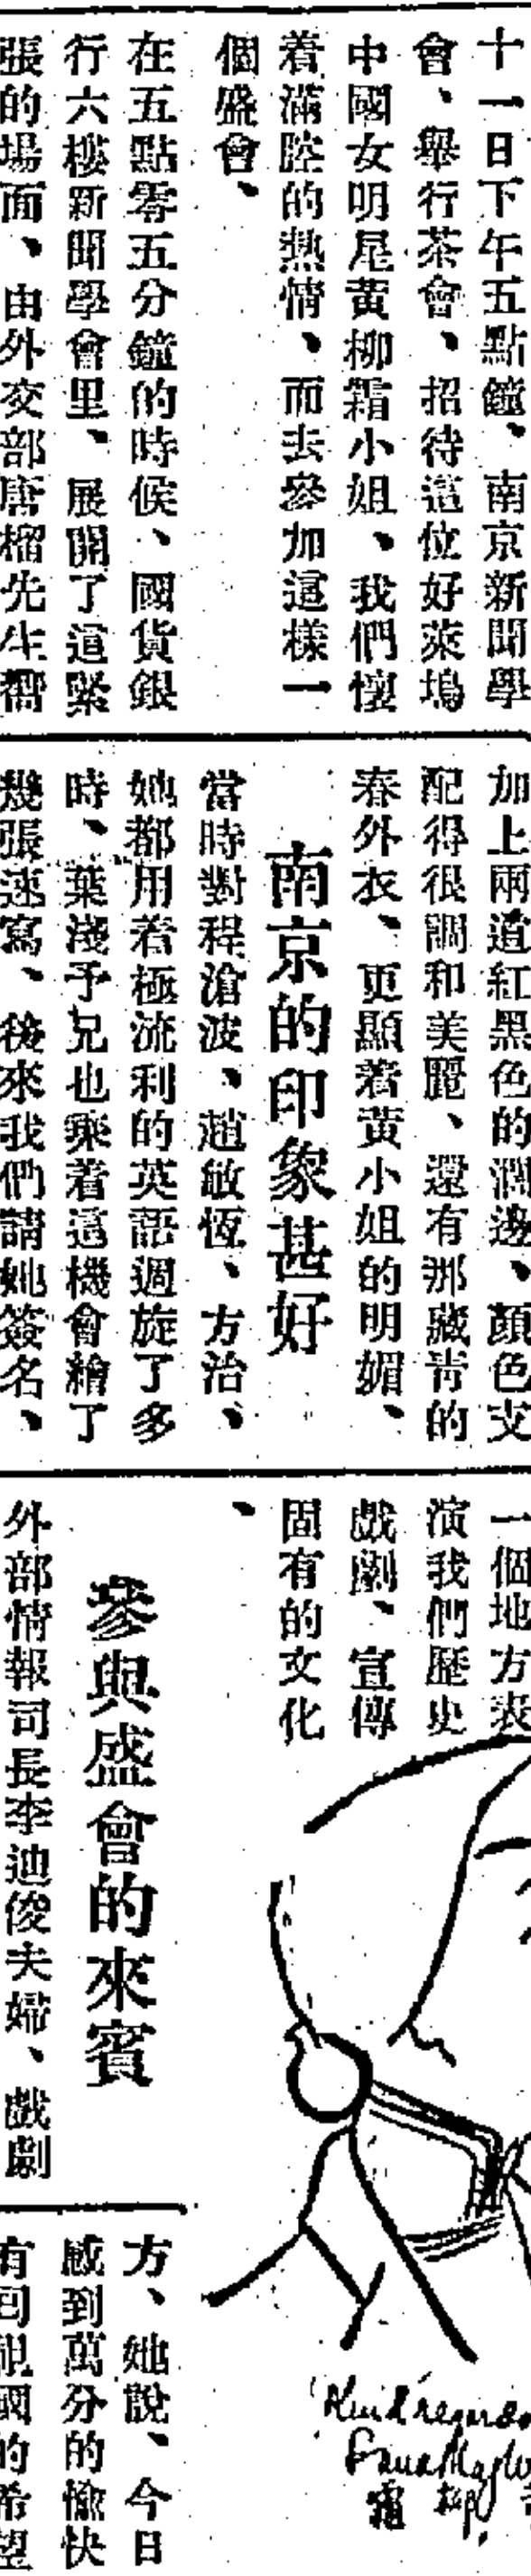 十一日下午五點鐘、南京新聞學
會、舉行茶會、招待這位好萊塢
中國女明星黃柳霜小姐、我們懷
着滿腔的熱情、而去參加這樣一
個盛會、
在五點零五分鐘的時候、國貨銀
行六樓新聞學會里、展開了這緊
張的場面、由外交部唐榴先生嚮
加上兩道紅黑色的濶邊、顏色支
配得很調和美麗、還有那藏青的
春外衣、更顯着黃小姐的明媚、
南京的印象甚好
當時對程滄波、趙敏恆、方治、
她都用着極流利的英語週旋了多
時、葉淺予兄也乘着這機會繪了
幾張速寫、後來我們請她簽名、
一個地方表
演我們歷史
戲劇、宣傳
固有的文化
、
參與盛會的來賓
外部情報司長李迪俊夫婦、戲劇
方、她說、今日
感到萬分的愉快
有到祖國的希望
Kind regards
Anna May Wo
霜